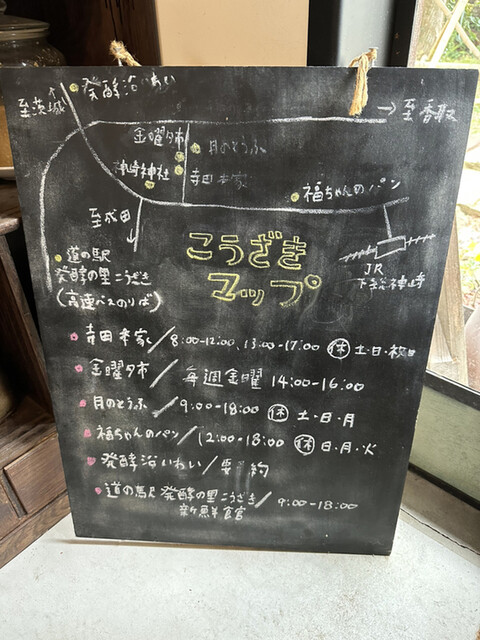 発酵浴いわい
至茨城
→至香取
金曜夕市
月のとうふ
神崎神社
寺田本家
福ちゃんのパン
至成田
道の駅
発酵の里こうざき
(高速バスのりば)
こうざき
マップ
JR
下総神崎
寺田本家/8:00-12:00、13:00-17:00 休 土・日・祝日
金曜夕市/毎週金曜 14:00-16:00
月のとうふ/9:00-18:00 休 土・日・月
福ちゃんのパン/12:00-18:00 休 日・月・火
発酵浴いわい/要予約
道の駅 発酵の里こうざき/9:00-18:00
新鮮食館